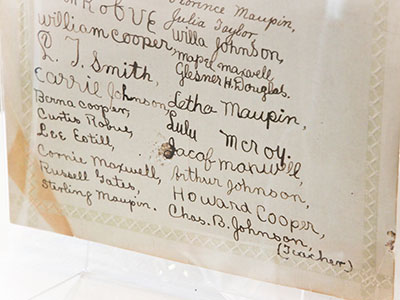 Florence Maupin,
Julia Taylor,
Robve
Willa Johnson,
William Cooper,
Mabel Maxwell,
Glesner H. Douglas.
L. T. Smith,
Carrie Johnson,
Letha Maupin,
Berna Cooper,
Lulu McRoy.
Curtis Robue,
Jacob Maxwell,
Lee Estill,
Arthur Johnson,
Connie Maxwell,
Howard Cooper,
Russell Gates,
Chas. B. Johnson,
Sterling Maupin.
(Teacher)